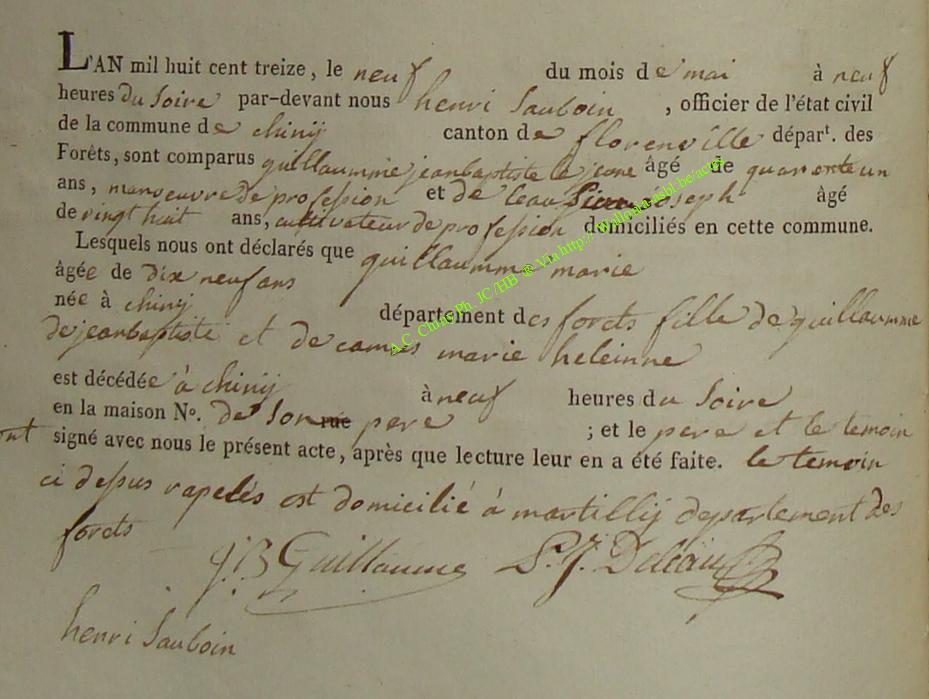 L'AN mil huit cent treize, le neuf du mois de mai à neuf
heures du Soire par-devant nous henri Sauboin , officier de l'état civil
de la commune de chinij canton de florenville départ. des
Forêts, sont comparus guillaumme jeanbaptiste le jeune âgé de quarente un
ans, manoeuvre de profession et de leau joseph âgé
de vingt huit ans, cultivateur de profession domiciliés en cette commune.
Lesquels nous ont déclarés que guillaumme marie
âgée de Dix neuf ans
née à chinij département des forets fille de guillaumme
de jeanbaptiste et de camus marie heleinne
est décédée à chinij à neuf heures du Soire
en la maison No. de Son rue pere ; et le pere et le temoin
ont signé avec nous le présent acte, après que lecture leur en a été faite. le temoin
ci depus rapelés est domicilié à martillij departement des
forets
J.B Guillaume P.J. Deleau
henri Sauboin
A.C. Chiny Ph. JC/HB @ Via http://www.luxroots.be/actes